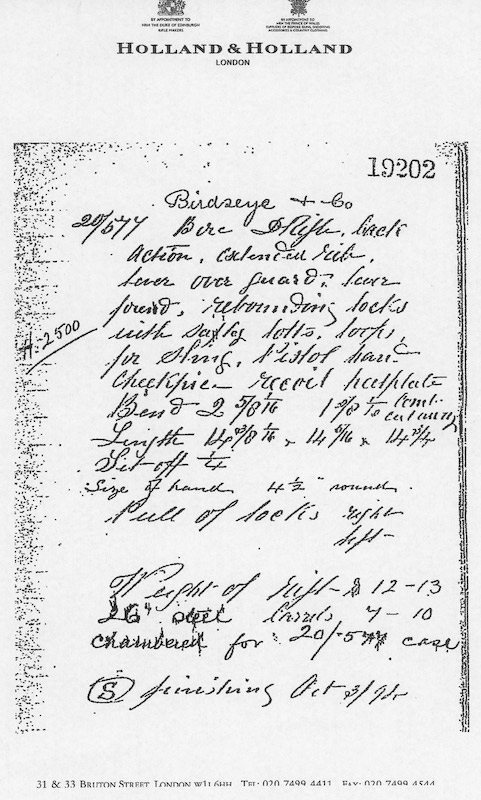 BY APPOINTMENT TO
HRH THE DUKE OF EDINBURGH
RIFLE MAKERS
BY APPOINTMENT TO
HRH THE PRINCE OF WALES
HOLLAND & HOLLAND
LONDON
19202
Birdseye & Co
20/577 Bore D Rifle, back
action, extended rib,
lever over guard, lever
rebounding locks
with safety bolts, loops,
for sling, Pistol hand
Cheekpiece recoil heelplate
H. 2500
Bend 2 5/8 1/16 1 5/8 1/16
Length 14 3/8 1/16 x 14 5/16 x 14 3/4
Set off 1/4
Size of hand 4 1/2" round
Pull of locks right
left
Weight of rifle 12-13
26" steel barrels 7-10
chambered for 20/577 case
S finishing Oct 3/
31 & 33 BRUTON STREET LONDON W1J 6HH TEL: 020 7499 4411 FAX: 020 7499 4544